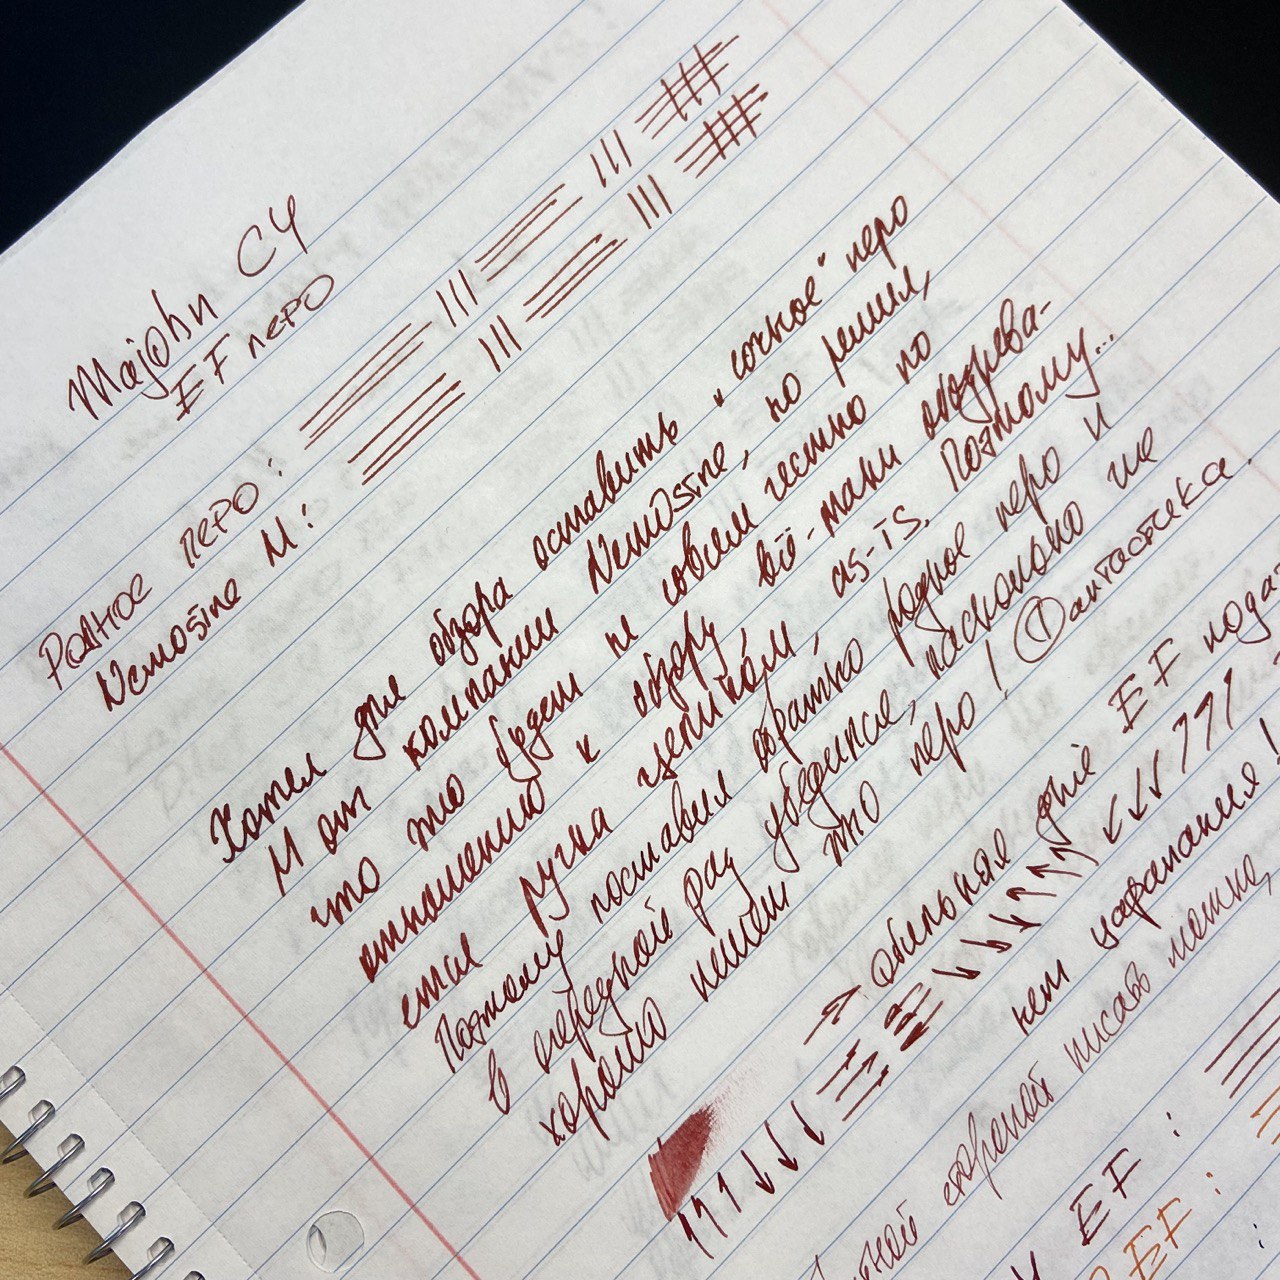 Majohn C4
EF перо
Родное перо:
Nemosine M:
Хотел для обзора оставить "сочное" перо
M от компании Nemosine, но решил,
что это будет не совсем честно по
отношению к обзору всё-таки обозрева-
емая ручка целиком, as-is. Поэтому...
Поэтому поставил обратно родное перо и
в очередной раз убедился, насколько же
хорошо пишет это перо! Фантастика.
Обильная для EF пода
нет царапания!
стороной писать можно,
EF:
EF: